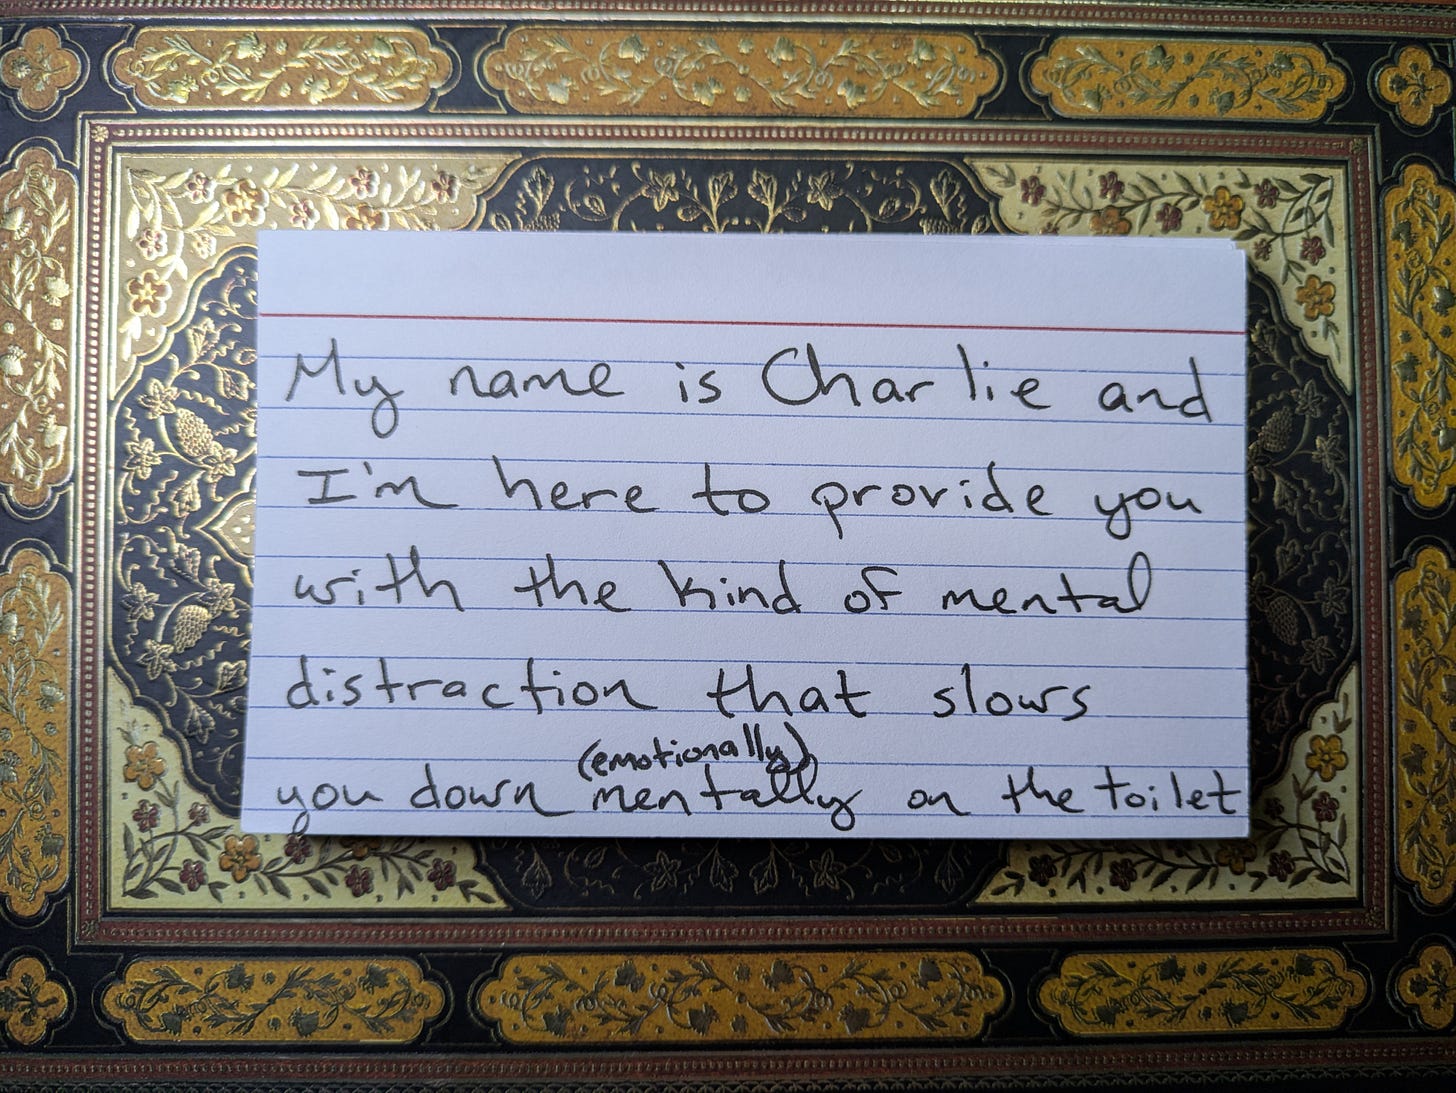 My name is Charlie and
I'm here to provide you
with the kind of mental
distraction that slows
(emotionally)
you down mentally on the toilet